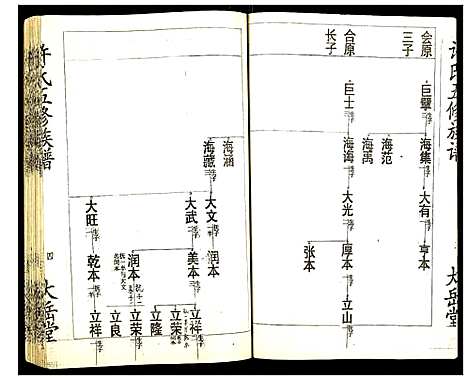 许氏五修族谱
会原
三子
巨擘
海集
海范
海禹
大有
享本
合原
长子
巨士
海海
大光
厚本
张本
立山
大岳堂
海涵
海藏
大文
大武
大旺
润本
美本
润本
乾本
立祥
立荣
立隆
立荣
立良
立祥
许氏五修族谱
四
大岳堂